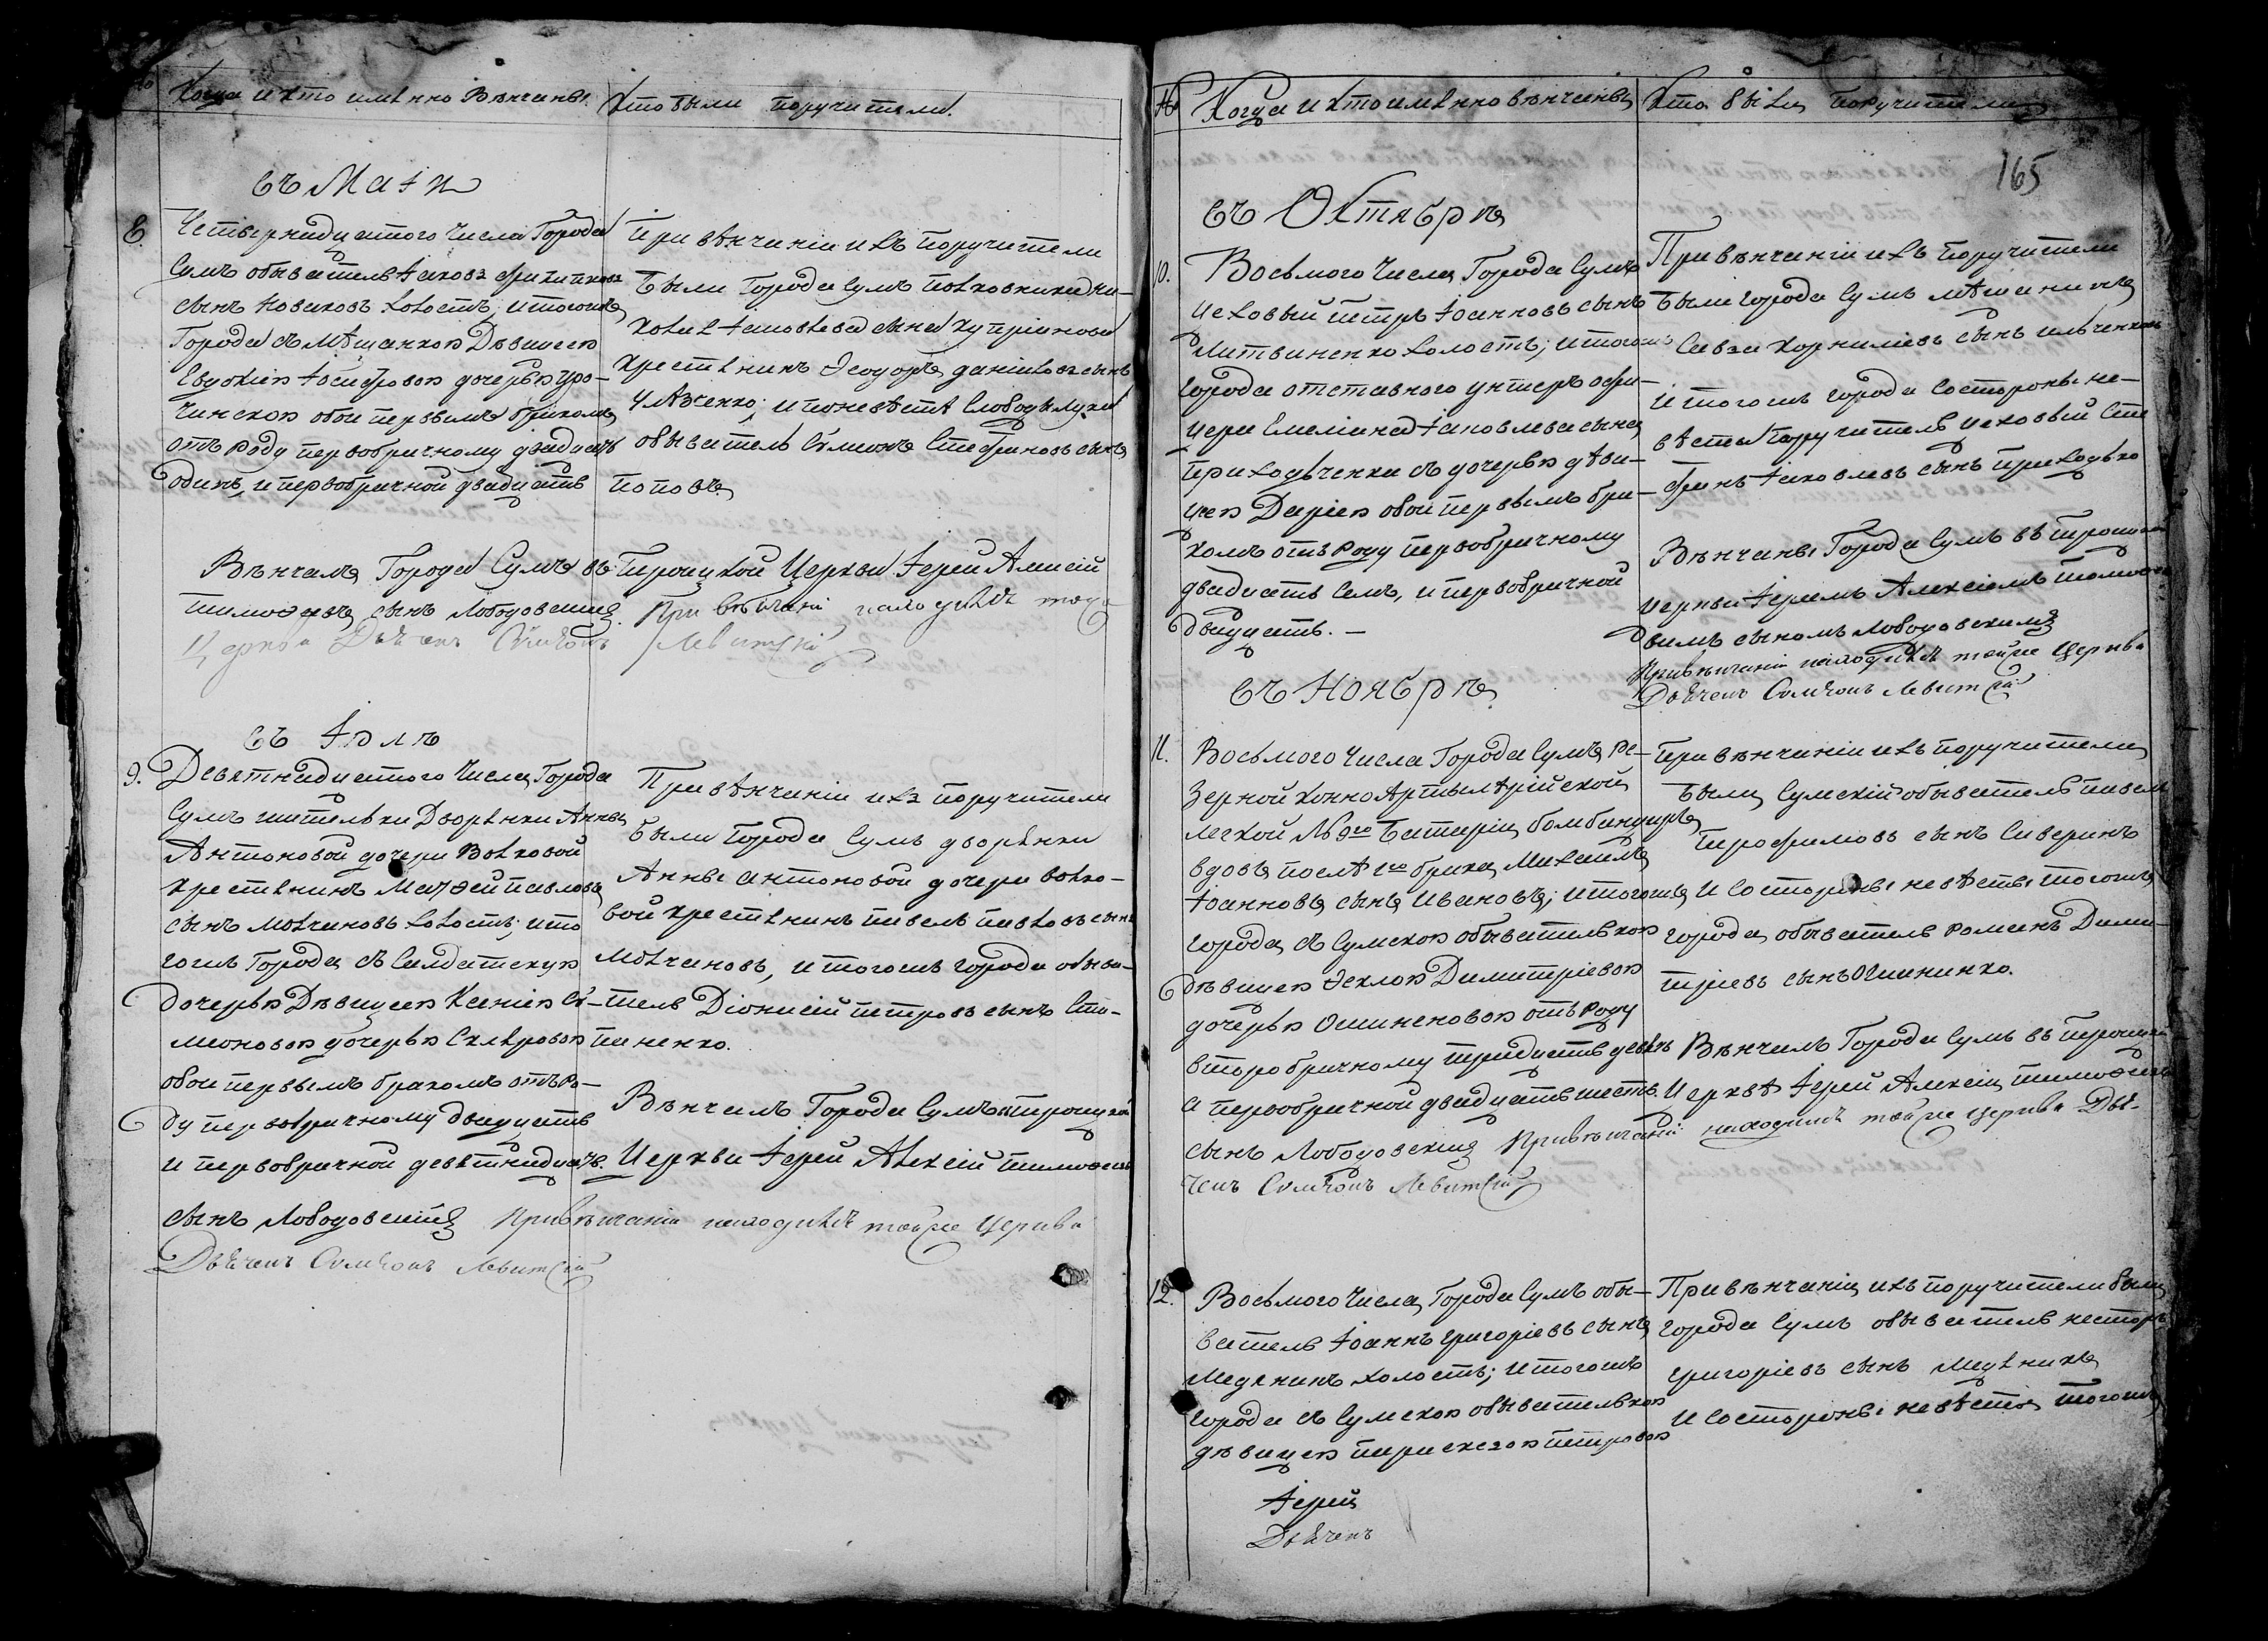 Когда и кто именно Венчаны.
Кто были поручители.
въ Маіи
8.
Четвернадцатого Числа Города
Сумъ обыватель Іаковъ
сынъ Новаковъ холостъ; и тогожъ
Города съ Мѣщанкою Дѣвицею
Евдокіею Іосифовою дочерью Гро-
чинскою обои первымъ бракомъ
отъ роду первобрачному двадцать
одинъ, и первобрачной двадцать
При вѣнчаніи ихъ поручители
были Города Сумъ полковника
Іаковлева сына Купріянова
крестянинъ Ѳеодоръ Даніиловъ сынъ
и по невѣстѣ Слободы Луки
обыватель Сѵмеонъ Стефановъ сынъ
Поповъ
Вѣнчалъ Города Сумъ въ Троицкой Церкви Іерей Алексій
Тимоѳеевъ сынъ Лободовскій. При венчаніи находился тоя
Церкви Дьяченъ Симеонъ Левитскій
въ Іюлѣ
9.
Девятнадцатого Числа Города
Сумъ жительки Дворянки Анны
Антоновой дочери Волковой
крестянинъ Матѳей Павловъ
сынъ Молчановъ холостъ; и то
гожъ Города съ Салдатскую
дочерью Дѣвицею Ксеніею Сѵ-
меоновою дочерью Скляровою
обои первымъ бракомъ отъ ро-
ду первобрачному двадцать
и первобрачной девятнадцать.
При вѣнчаніи ихъ поручители
были Города Сумъ дворянки
Анны Антоновой дочери Волко-
вой крестянинъ Павелъ Павловъ сынъ
Молчановъ, и тогожъ города обыва-
тель Діонисій Петровъ сынъ Сте-
паненко.
Вѣнчалъ Города Сумъ Троицкой
Церкви Іерей Алексій Тимоѳеевъ
сынъ Лободовскій При венчаніи находился той же Церкви
Дьяченъ Симеонъ Левитскій
№
Когда и кто именно вѣнчаны
Кто были поручители
165
въ Октябрѣ
10.
Восьмого Числа Города Сумъ
Цеховый Петръ Іоанновъ сынъ
Литвиненко холостъ; и тогожъ
города отставного унтеръ офи-
цера Емеліана Іаковлева сына
Приходьченка съ дочерью дѣви-
цею Даріею обои первымъ бра-
комъ отъ роду первобрачному
двадцать семъ, и первобрачной
двадцать. —
При вѣнчаніи ихъ поручители
были города Сумъ мѣщанинъ
Савва Корниліевъ сынъ Ильченковъ
и тогожъ города состороны не-
вѣсты поручитель цеховый Сте
фанъ Іаковлевъ сынъ Приходько
Вѣнчаны Города Сумъ въ Троицкой
церкви Іереемъ Алексіемъ Тимоѳее
вымъ сыномъ Лободовскимъ
При венчаніи находился той же Церкви
Дьяченъ Симеонъ Левитскій
въ Ноябрѣ
11.
Восьмого Числа Города Сумъ ре-
зерной конно Артылѣрійской
легкой № 9го Батаріи, бомбандиръ
вдовъ послѣ 1го брака, Михаилъ
Іоанновъ сынъ Ивановъ; и тогожъ
города, съ Сумскою обывательскою
дѣвицею Ѳеклою Димитріевою
дочерью Ошиненовою отъ роду
второбрачному тридцать девять
а первобрачной двадцать шесть.
При вѣнчаніи ихъ поручители
были, Сумскій обыватель Павелъ
Трофимовъ сынъ Саверинъ
и состороны невѣсты тогожъ
города, обыватель Романъ Дими-
тріевъ сынъ Ошиненко.
Вѣнчалъ Города Сумъ въ Троицкой
Церквѣ Іерей Алексій Тимоѳеевъ
сынъ Лободовскій При венчаніи находился той же церкви Дья-
ченъ Симеонъ Левитскій
12.
Восьмого Числа, Города Сумъ обы-
ватель Іоаннъ Григоріевъ сынъ
Медяникъ холостъ; и тогожъ
города съ Сумскою обывательскою
дѣвицею Параскевою Петровою
При вѣнчаніи, ихъ поручители были
города Сумъ обыватель Несторъ
Григоріевъ сынъ Медяникъ
и состороны невѣсты тогожъ
Іерей
Дьяченъ